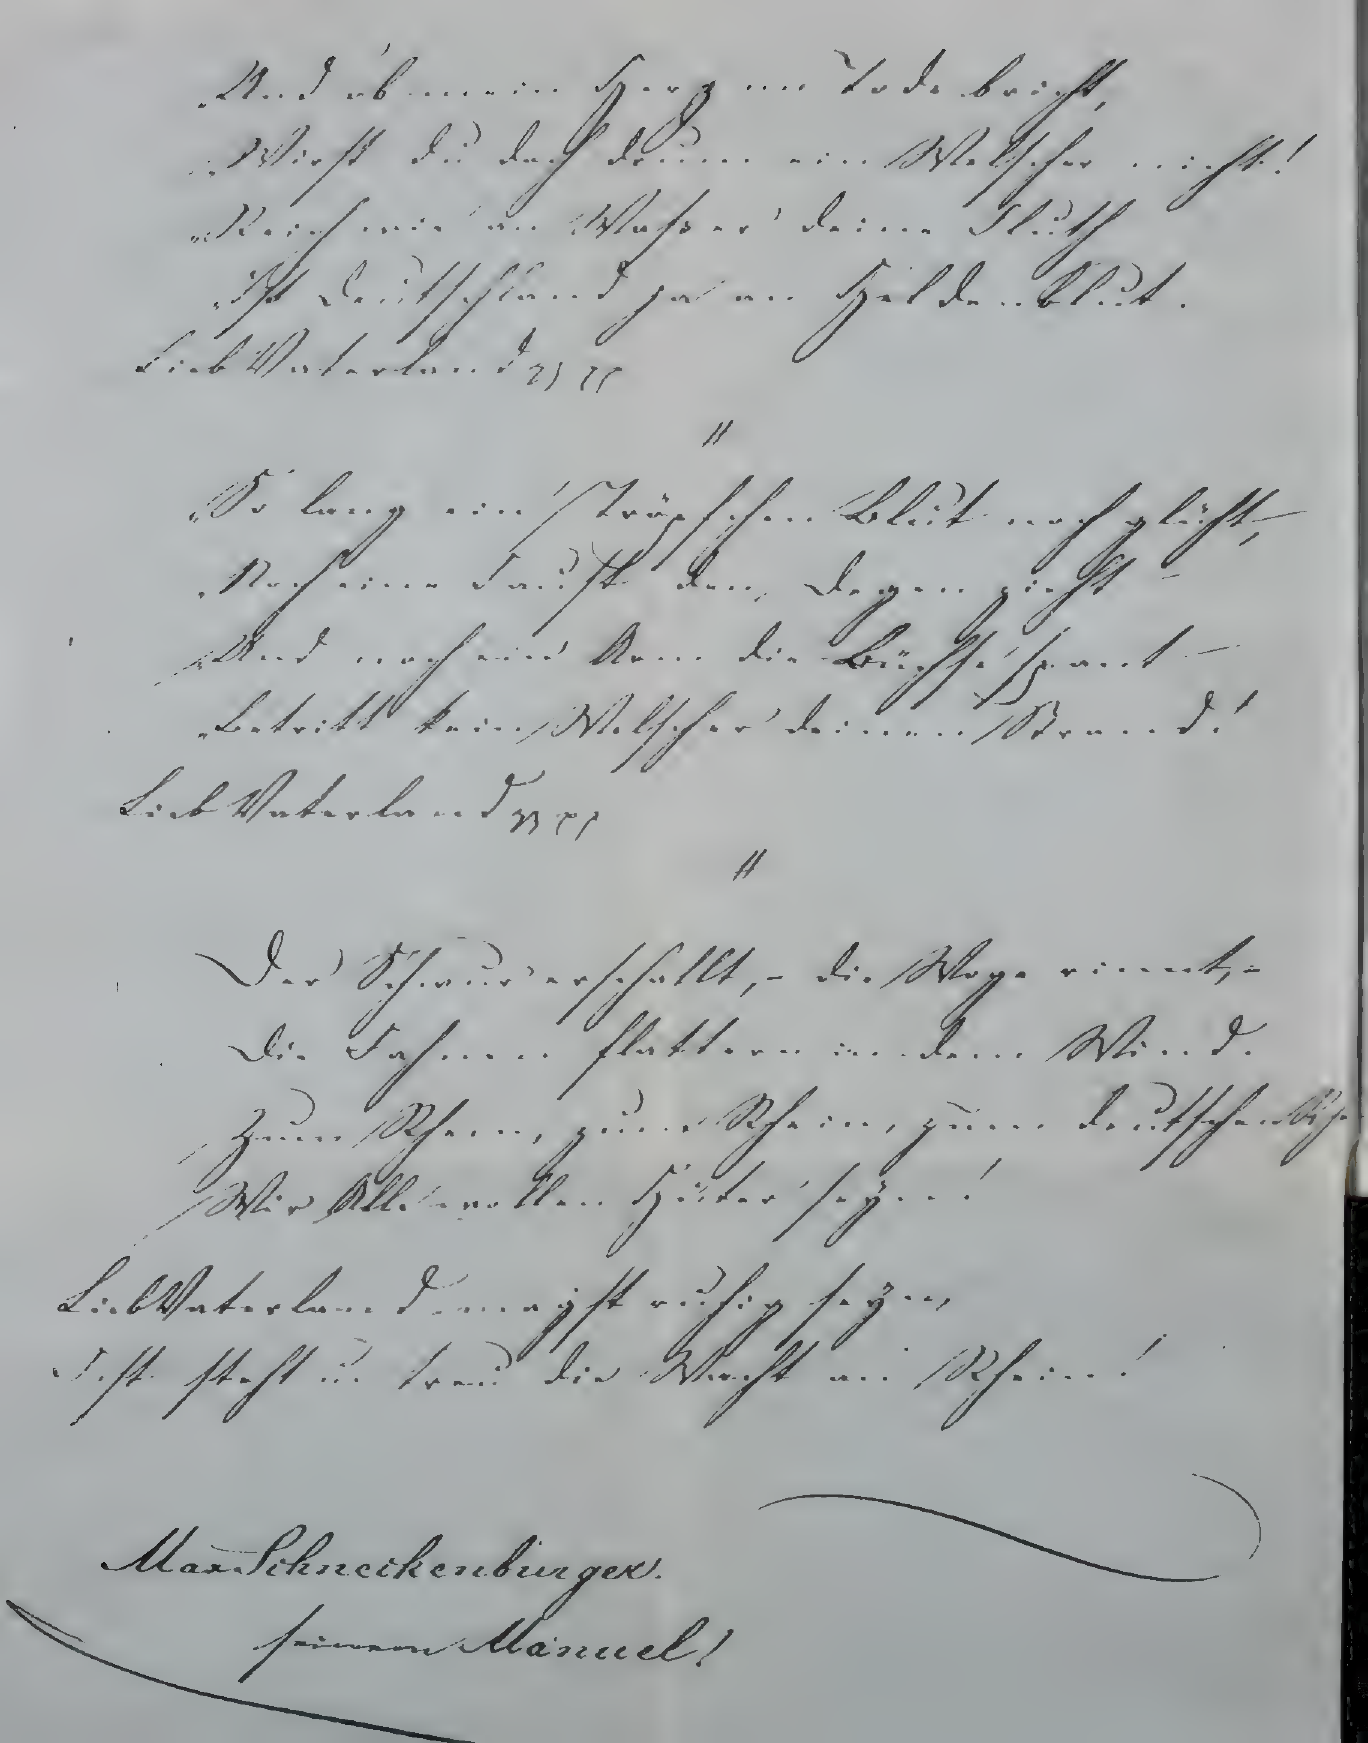 „Und ob mein Herz im Tode bricht,
„Wirst du doch drum ein Welscher nicht!
„Reich wie an Wasser deine Fluth
„Ist Deutschland ja an Heldenblut.
Lieb Vaterland
"
„So lang ein Tröpfchen Blut noch glüht,
„Noch eine Faust den Degen zieht –
„Und noch ein Arm die Büchse spant –
„Betritt kein Welscher deinen Strand!
Lieb Vaterland
"
Der Schwur erschallt, – die Woge rinnt, –
Die Fahnen flattern in dem Wind.
Zum Rhein, zum Rhein, zum deutschen
Wir Alle wollen Hüter seyn!
Lieb Vaterland magst ruhig seyn,
Fest steht u. treu die Wacht am Rhein!
Max Schneckenburger.
seinem Manuel!